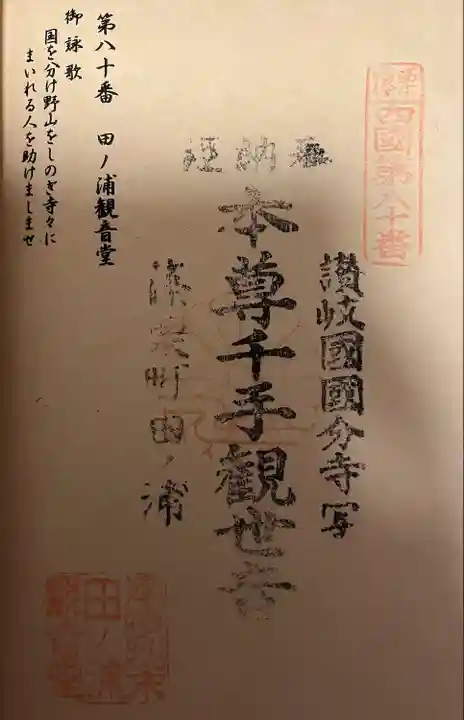 四國第八十番
奉納経
讃岐國國分寺写
本尊千手觀世音
篠栗町田ノ浦
第八十番　田ノ浦観音堂
御詠歌
国を分け野山をしのぎ寺々に
まいれる人を助けましませ
田ノ浦
観音堂